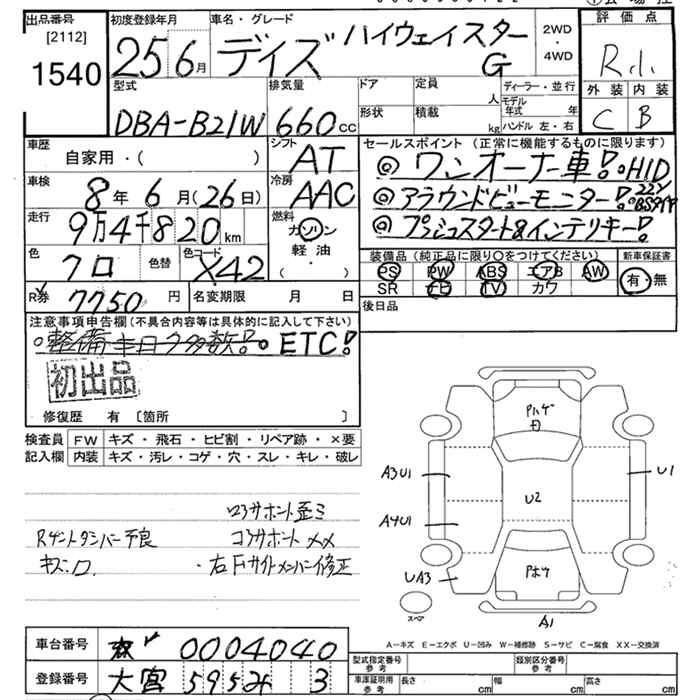 出品番号
[2112]
1540
初度登録年月
25 6月
車名・グレード
デイズ ハイウェイスター
G
2WD
・
4WD
評価点
R.1.
外装 内装
C B
型式
DBA-B21W
排気量
660cc
ドア
定員
人
形状
積載
kg
ディーラー・並行
モデル年式 年
ハンドル 左・右
車歴
自家用・( )
シフト
AT
車検
8年 6月(26日)
冷房
AAC
走行
9万4千820km
燃料
ガソリン
軽油
( ・ )
色
クロ
色替
色コード
X42
R券
7750円
名変期限 月 日
セールスポイント(正常に機能するものに限ります)
◎ワンオーナー車!。HID
◎アラウンドビューモニター!
◎プッシュスタート&インテリキー!
装備品(純正品に限り○をつけてください)
PS PW ABS エアB AW
SR ナビ TV カワ
新車保証書
有・無
後日品
注意事項申告欄(不具合内容等は具体的に記入して下さい)
。整備キロク多数!。ETC!
初出品
修復歴 有 〔箇所 〕
検査員記入欄
FW キズ・飛石・ヒビ割・リペア跡・×要
内装 キズ・汚レ・コゲ・穴・スレ・キレ・破レ
ロアサポート歪ミ
Rゲートダンパー不良 コアサポート××
キズ・ロ ・右Fサイドメンバー修正
Pハゲ
A3U1
U1
U2
A4U1
Pボケ
UA3
スペア
A1
A-キズ E-エクボ U-凹み W-補修跡 S-サビ C-腐食 XX-交換済
車台番号
0004040
登録番号
大宮 595 3
型式指定番号
参考
類別区分番号
参考
車庫証明用
参考
長さ cm
幅 cm
高さ cm